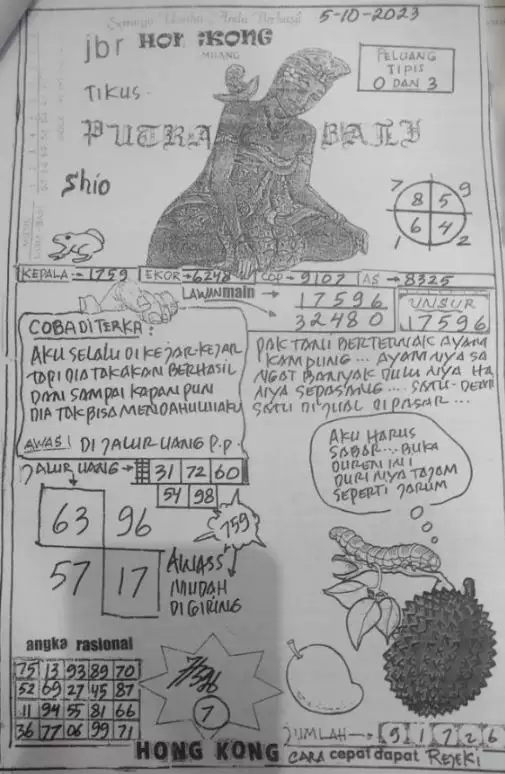 5-10-2023
jbr HONGKONG
MILANG
PELUANG
TIPIS
0 DAN 3
TIKUS
PUTRA BALI
Shio
7 9
8 5
6 4
1 2
KEPALA:-1759 EKOR→6248 COP→9107 AS→8325
LAWAN main → 17596
32480
UNSUR
17596
COBA DITERKA:
AKU SELALU DI KEJAR-KEJAR
TAPI DIA TAKAKAN BERHASIL
DAN SAMPAI KAPAN PUN
DIA TAK BISA MENDAHULUI AKU
AWAS! DI JALUR UANG P.P.
PAK TANI BERTERNAK AYAM
KAMPUNG... AYAMNYA SA
NGAT BANYAK DULUNYA HA
NYA SEPASANG....
SATU DIJUAL DIPASAR...
AKU HARUS
SABAR... BUKA
DUREN INI
DURI NYA TAJAM
SEPERTI JARUM
JALUR UANG → 31 72 60
54 98
63 96
57 17
759
AWASS
MUDAH
DIGIRING
angka rasional
75 13 93 89 70
52 69 27 45 87
11 94 55 81 66
36 77 06 99 71
7
JUMLAH → 91726
HONG KONG CARA cepat dapat REJEKI